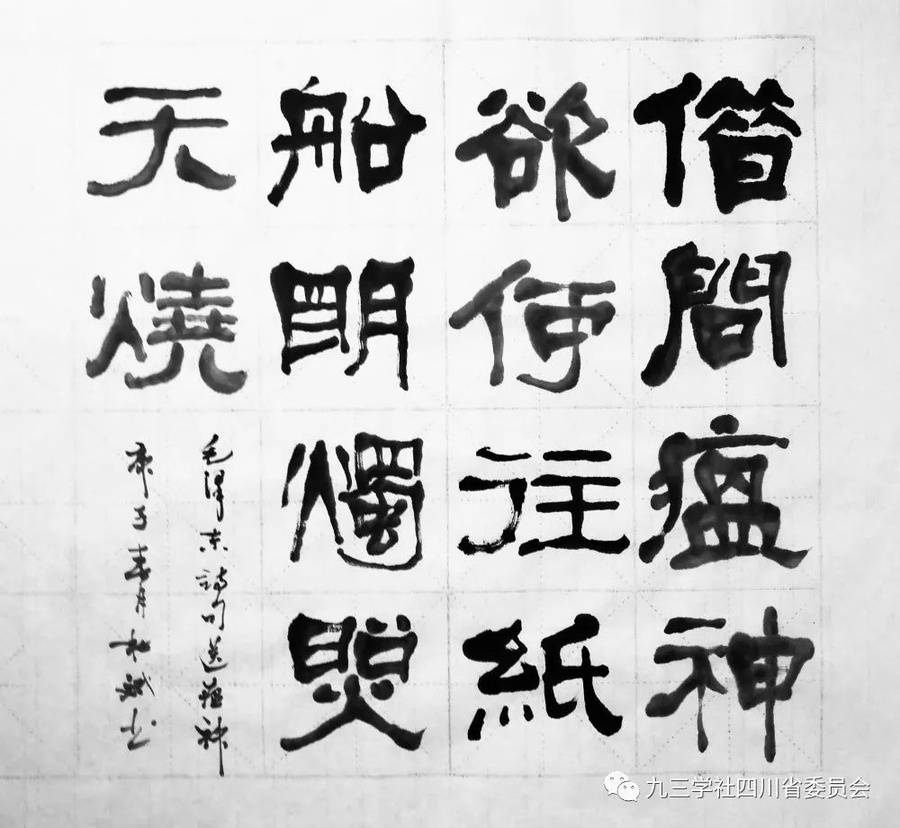 借間瘟神
欲何往紙
船明燭照
天燒
毛澤东詩句送瘟神
庚子春月杜斌书
九三学社四川省委员会